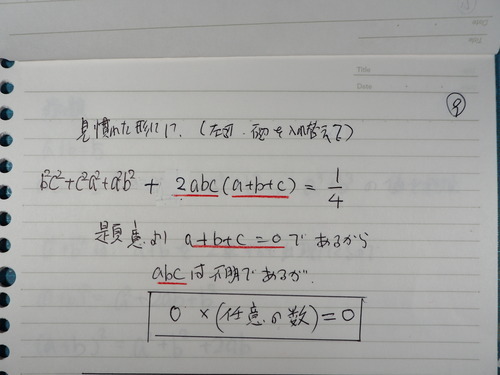 Title
Date
9
見慣れた形にに.(左辺・右辺を入れ替えて)
b²c²+c²a²+a²b² + 2abc(a+b+c) = 1/4
題意より a+b+c=0 であるから
abc は不明であるが.
0 ×(任意の数)=0